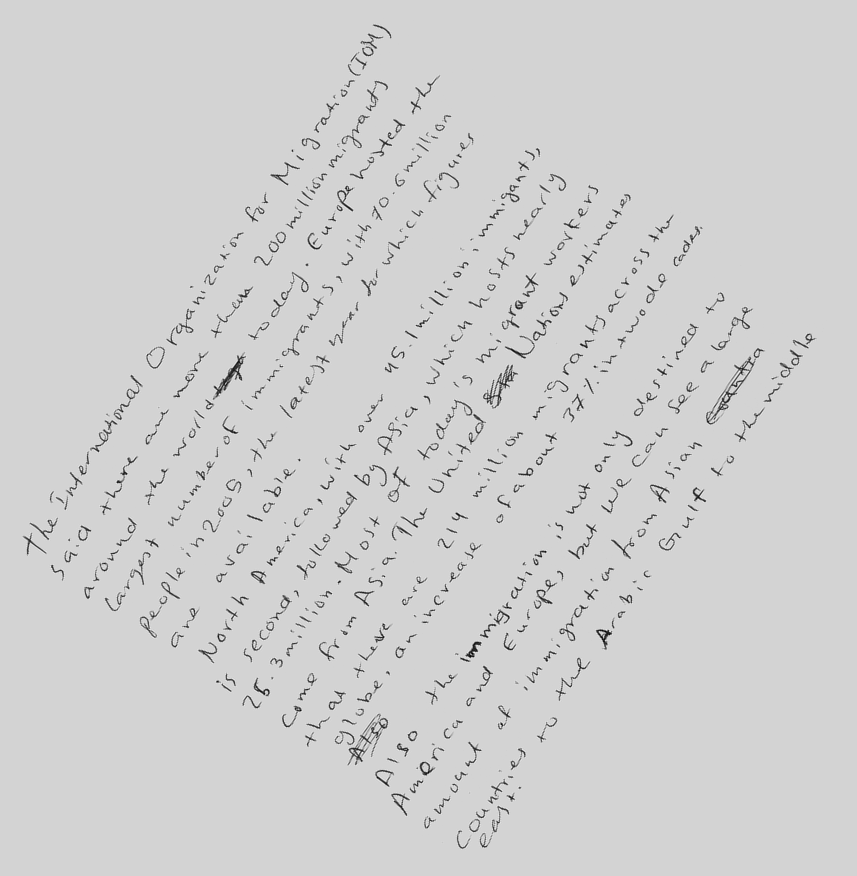 The International Organization for Migration (IOM)
said there are more than 200 million migrants
around the world today. Europe hosted the
largest number of immigrants, with 70.6 million
people in 2005, the latest year for which figures
are available.
North America, with over 45.1 million immigants,
is second, followed by Asia, which hosts nearly
25.3 million. Most of today's migrant workers
come from Asia. The United Nations estimates
that there are 214 million migrants across the
globe, an increase of about 37% in two decades.
Also the immigration is not only destined to
America and Europe, but we can see a large
amount of immigration from Asian
countries to the Arabic Gulf to the middle
east.